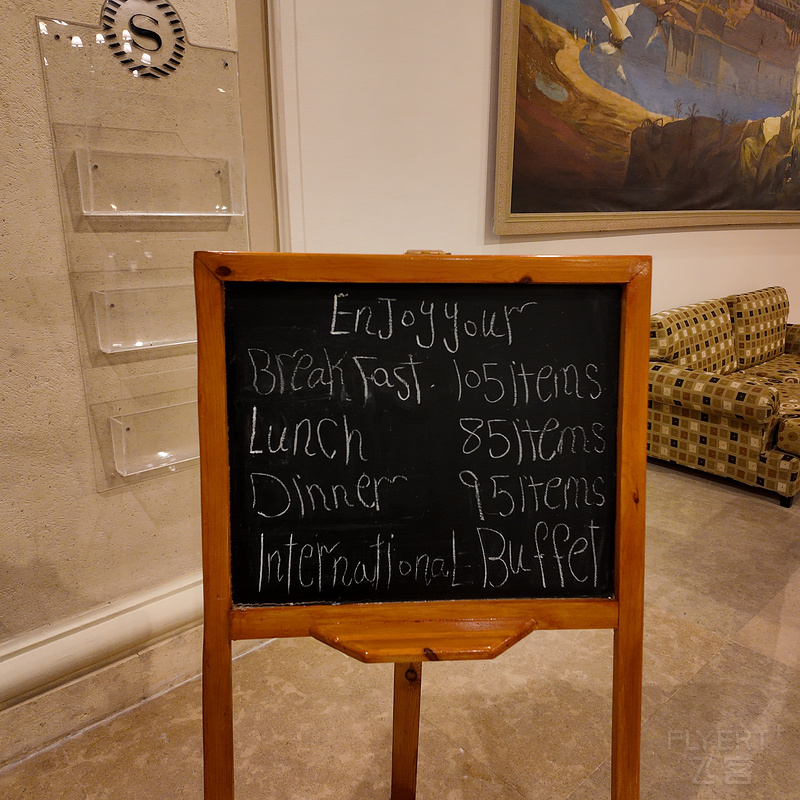 S
Enjoy your
Breakfast. 105 items
Lunch 85 items
Dinner 95 items
International Buffet
FLYERT